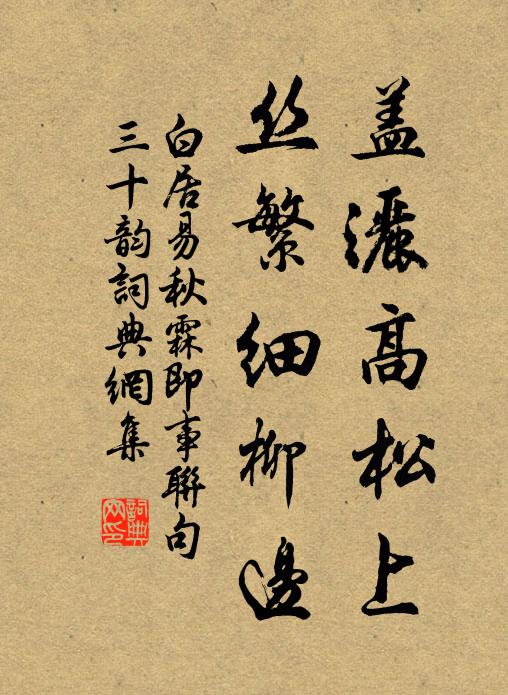 盖灑高松上
丝繁细柳邊
白居易秋霖即事聯句
三十韵詞典網集
詞典
网印